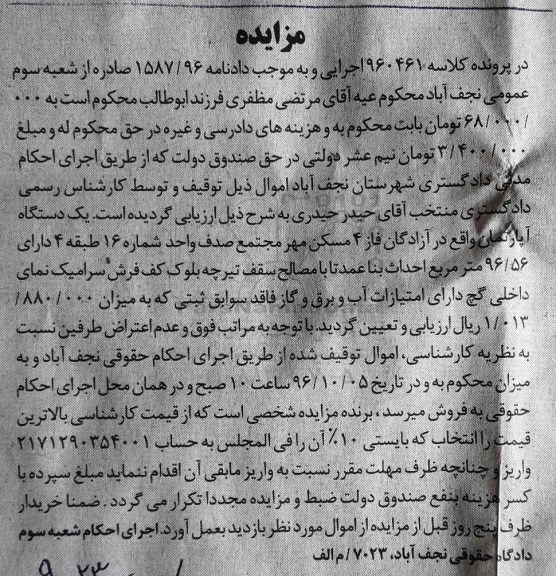 مزایده
در پرونده کلاسه ۹۶۰۴۶۱ اجرایی و به موجب دادنامه ۱۵۸۷/۹۶ صادره از شعبه سوم
عمومی نجف آباد محکوم عیه آقای مرتضی مظفری فرزند ابوطالب محکوم است به ۰۰۰
/۶۸/۰۰۰ تومان بابت محکوم به و هزینه های دادرسی و غیره در حق محکوم له و مبلغ
۳/۴۰۰/۰۰۰ تومان نیم عشر دولتی در حق صندوق دولت که از طریق اجرای احکام
مدنی دادگستری شهرستان نجف آباد اموال ذیل توقیف و توسط کارشناس رسمی
دادگستری منتخب آقای حیدر حیدری به شرح ذیل ارزیابی گردیده است. یک دستگاه
آپارتمان واقع در آزادگان فاز ۴ مسکن مهر مجتمع صدف واحد شماره ۱۶ طبقه ۴ دارای
۹۶/۵۶ متر مربع احداث بنا عمدتا با مصالح سقف تیرچه بلوک کف فرش سرامیک نمای
داخلی گچ دارای امتیازات آب و برق و گاز فاقد سوابق ثبتی که به میزان ۸۸۰/۰۰۰/
۱/۰۱۳ ریال ارزیابی و تعیین گردید. با توجه به مراتب فوق و عدم اعتراض طرفین نسبت
به نظریه کارشناسی، اموال توقیف شده از طریق اجرای احکام حقوقی نجف آباد و به
میزان محکوم به و در تاریخ ۹۶/۱۰/۰۵ ساعت ۱۰ صبح و در همان محل اجرای احکام
حقوقی به فروش میرسد، برنده مزایده شخصی است که از قیمت کارشناسی بالاترین
قیمت را انتخاب که بایستی ۱۰٪ آن را فی المجلس به حساب ۲۱۷۱۲۹۰۳۵۴۰۰۱
واریز و چنانچه ظرف مهلت مقرر نسبت به واریز مابقی آن اقدام ننماید مبلغ سپرده با
کسر هزینه بنفع صندوق دولت ضبط و مزایده مجددا تکرار می گردد. ضمنا خریدار
ظرف پنج روز قبل از مزایده از اموال مورد نظر بازدید بعمل آورد. اجرای احکام شعبه سوم
دادگاه حقوقی نجف آباد، ۷۰۲۳/م الف